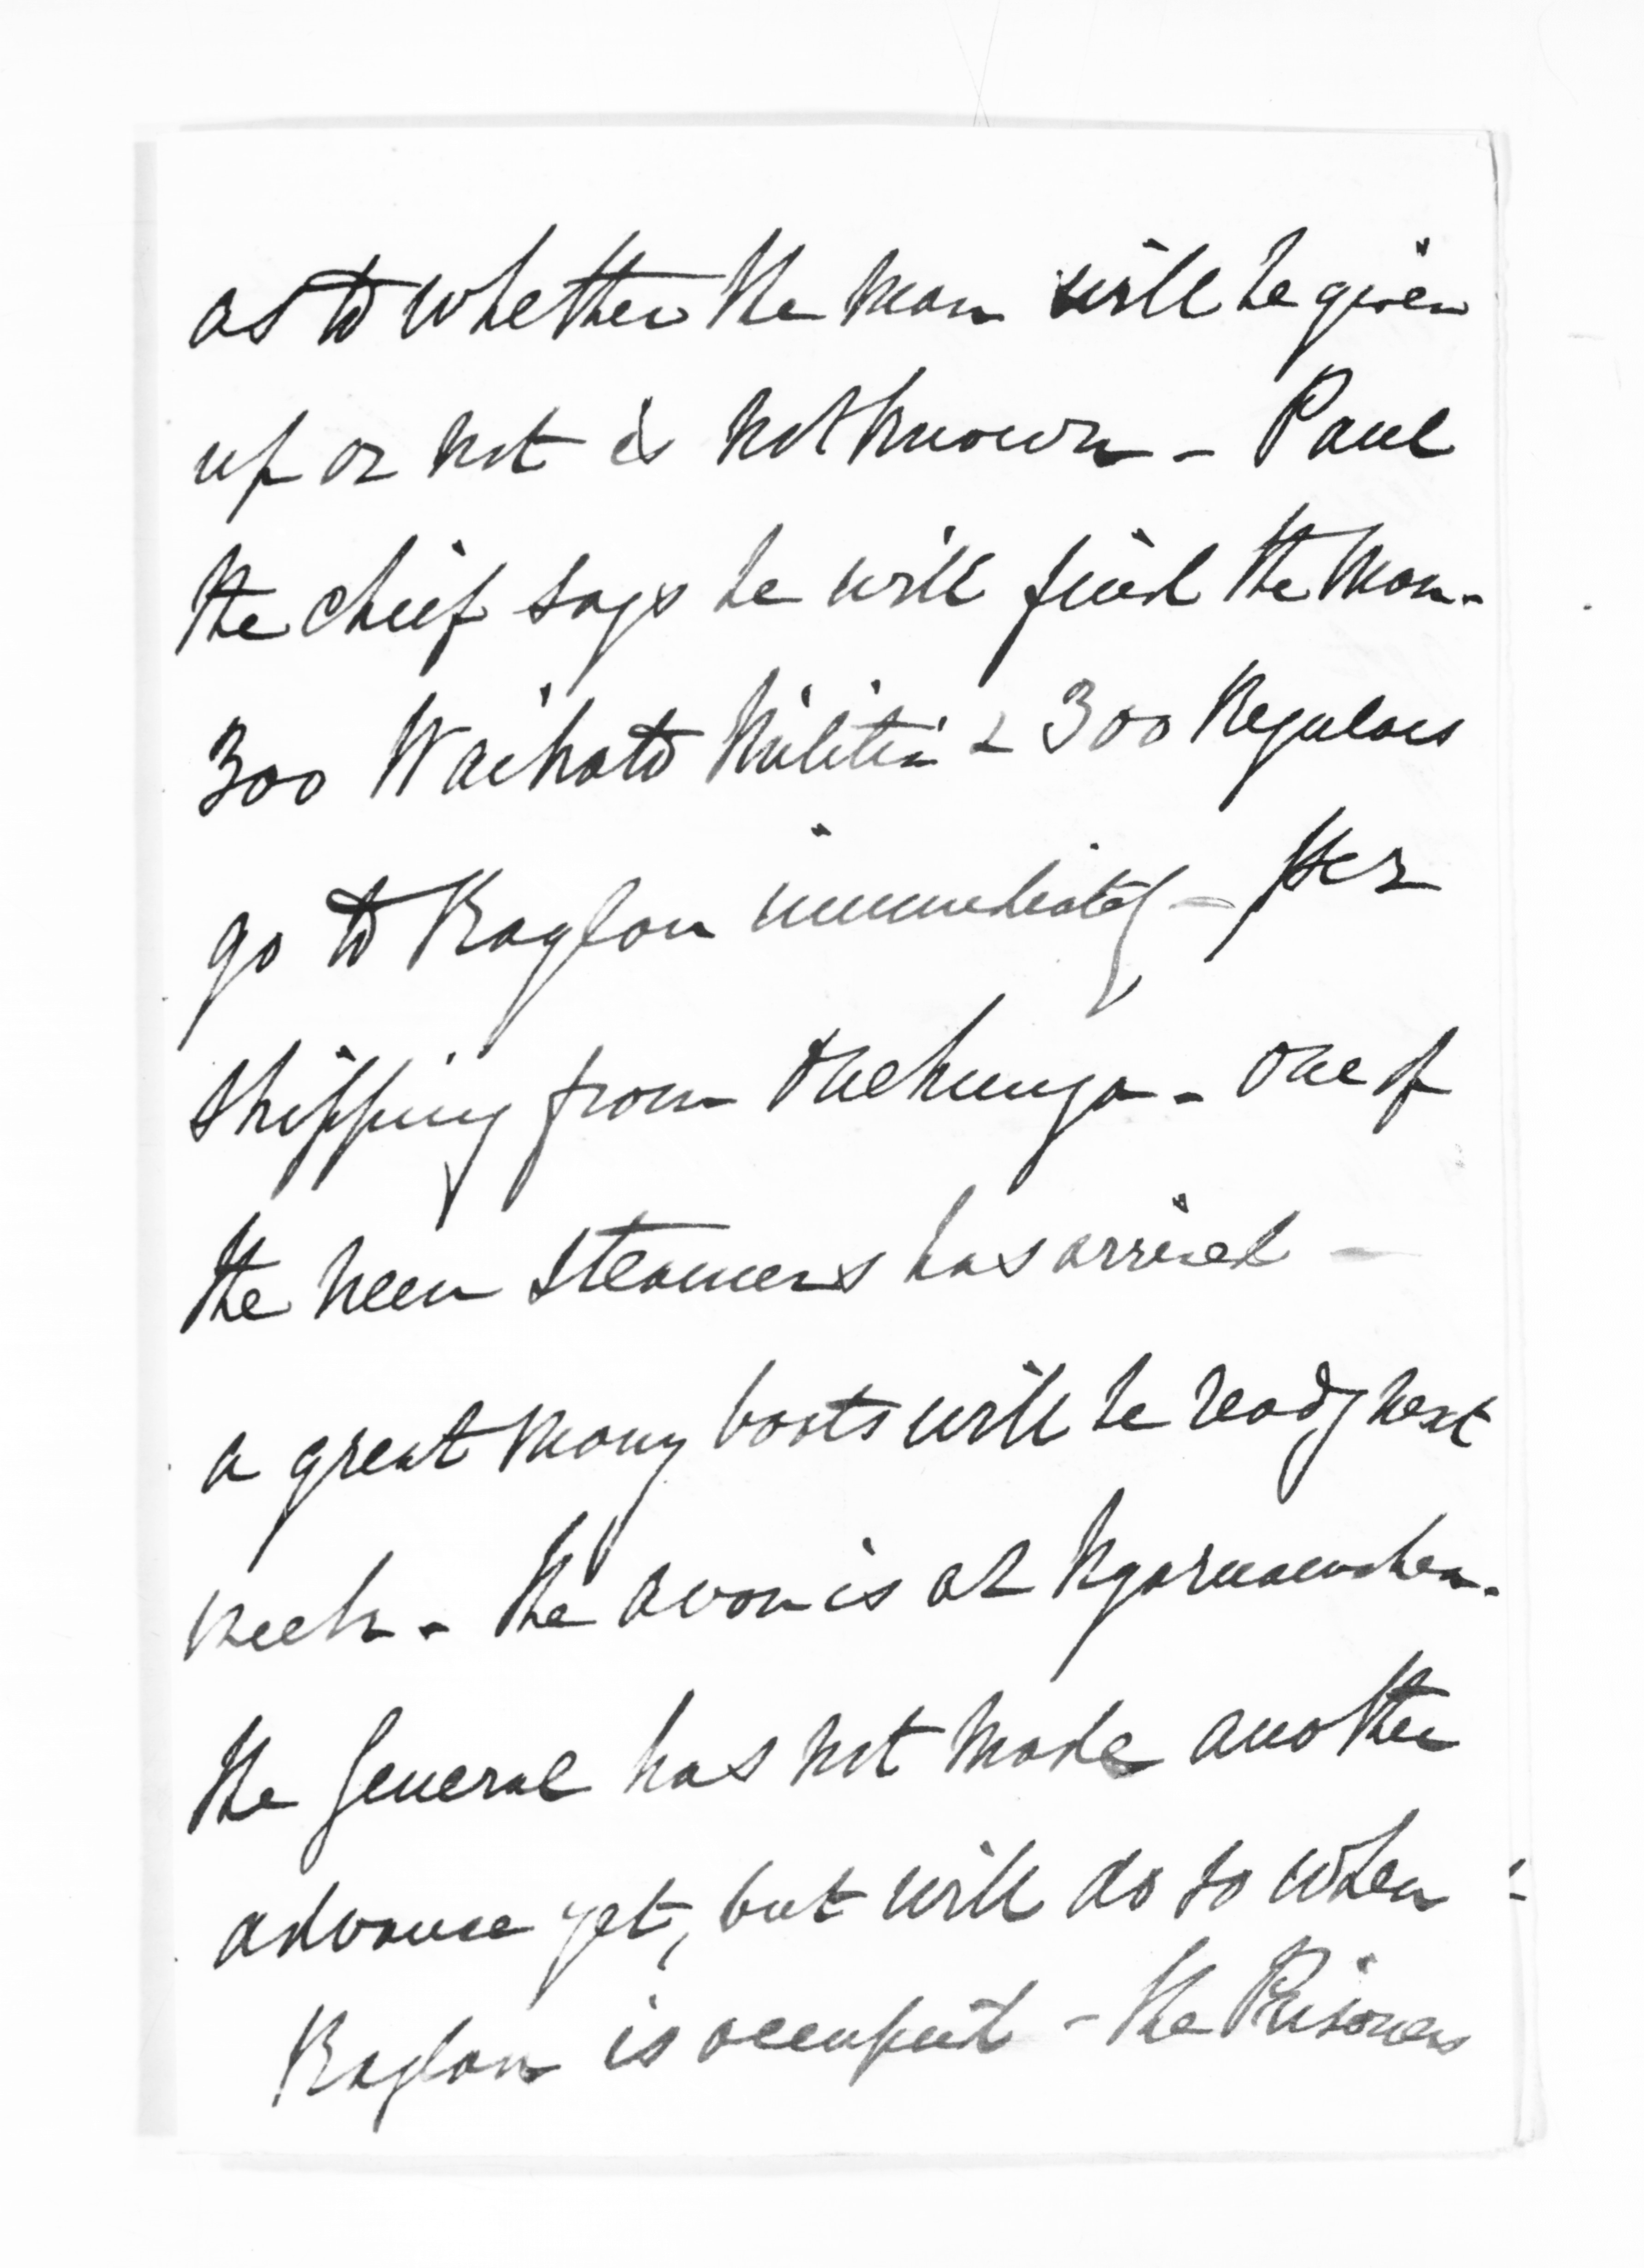 as to whether the man will be given
up or not is not known - Paul
the chief says he will find the man -
300 Waikato Militia & 300 Regulars
go to Raglan immediately - per
shipping from Onehunga - One of
the new steamers has arrived -
a great many boats will be ready next
week - The Avon is at Ngaruawahea -
The General has not made another
advance yet, but will do so when
Raglan is occupied - The Prisoners